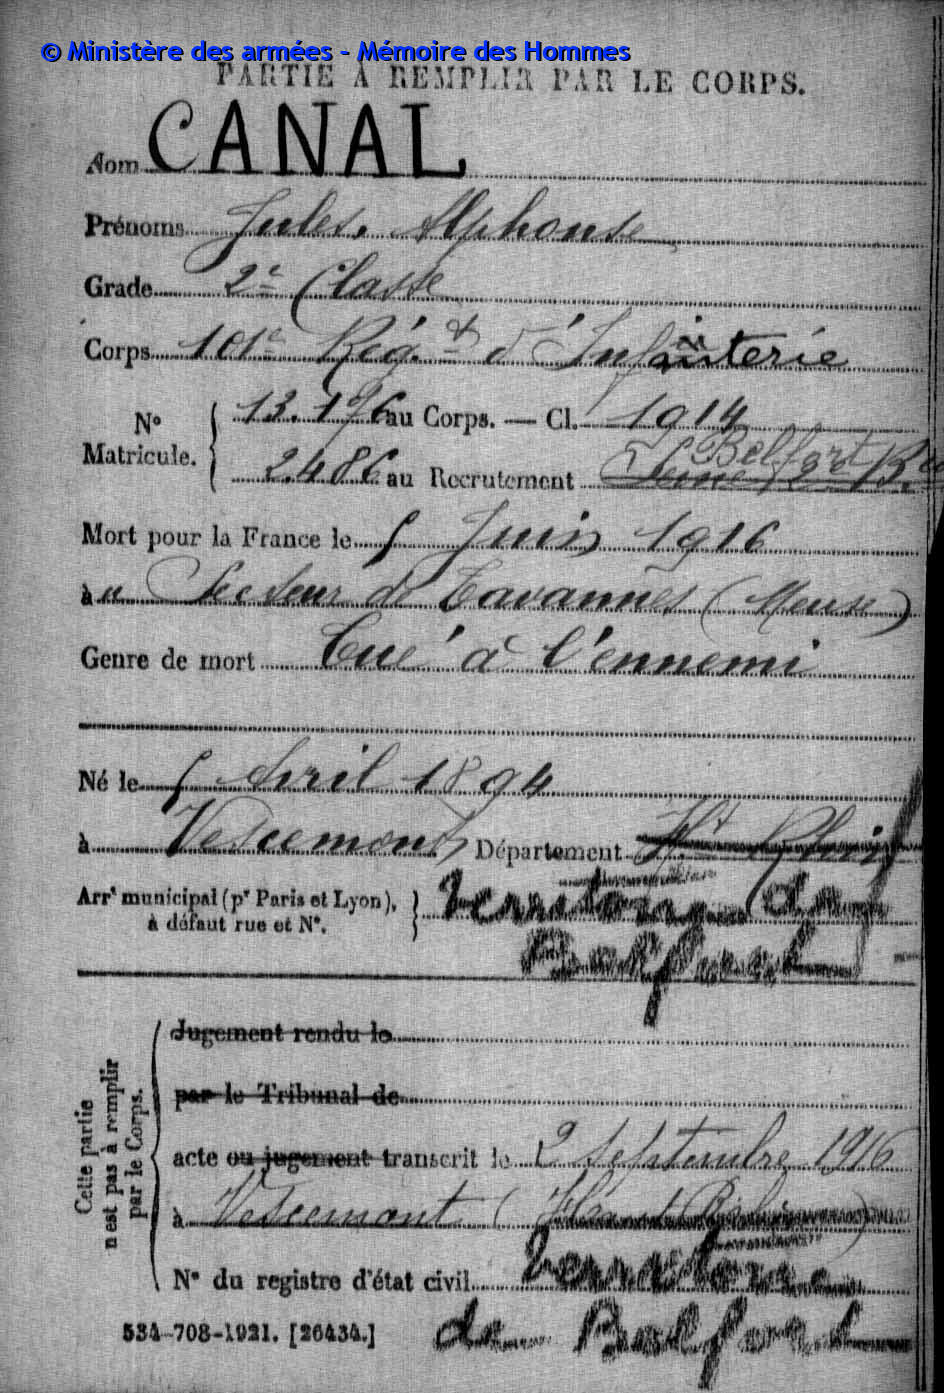 © Ministère des armées - Mémoire des Hommes
PARTIE À REMPLIR PAR LE CORPS.
Nom CANAL
Prénoms Jules, Alphonse
Grade 2e Classe
Corps 101e Rég.t d'Infanterie
No Matricule. 13.176 au Corps. — Cl. 1914
Belfort
2486 au Recrutement Seine 2e B.
Mort pour la France le 5 Juin 1916
à u Secteur de Tavannes (Meuse)
Genre de mort Tué à l'ennemi
Né le 5 Avril 1894
à Vescemont Département Ht Rhin
Arrt municipal (pr Paris et Lyon), à défaut rue et No.
Territoire de
Belfort
Cette partie n'est pas à remplir par le Corps.
Jugement rendu le
par le Tribunal de
acte ou jugement transcrit le 2 Septembre 1916
à Vescemont
No du registre d'état civil
Territoire
534-708-1921. [26434.] de Belfort